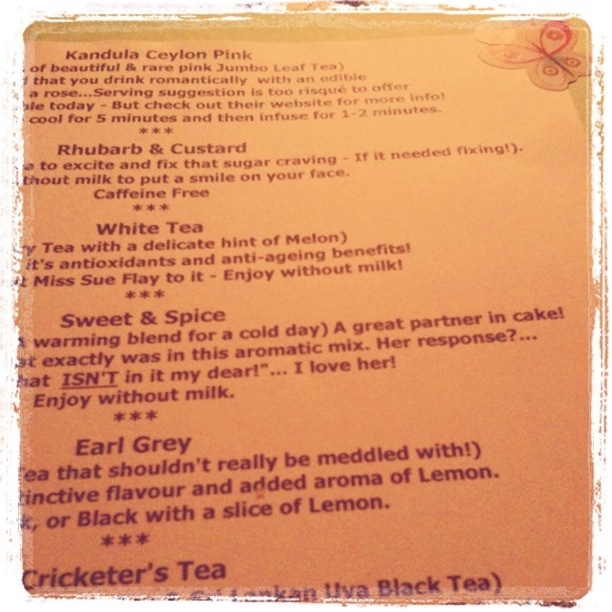 Kandula Ceylon Pink
of beautiful & rare pink Jumbo Leaf Tea)
that you drink romantically with an edible
a rose...Serving suggestion is too risqué to offer
today - But check out their website for more info!
cool for 5 minutes and then infuse for 1-2 minutes.
***
Rhubarb & Custard
to excite and fix that sugar craving - If it needed fixing!).
without milk to put a smile on your face.
Caffeine Free
***
White Tea
Tea with a delicate hint of Melon)
it's antioxidants and anti-ageing benefits!
Miss Sue Flay to it - Enjoy without milk!
***
Sweet & Spice
warming blend for a cold day) A great partner in cake!
exactly was in this aromatic mix. Her response?...
ISN'T in it my dear!"... I love her!
Enjoy without milk.
***
Earl Grey
Tea that shouldn't really be meddled with!)
flavour and added aroma of Lemon.
or Black with a slice of Lemon.
***
Cricketer's Tea
Lankan Uva Black Tea)